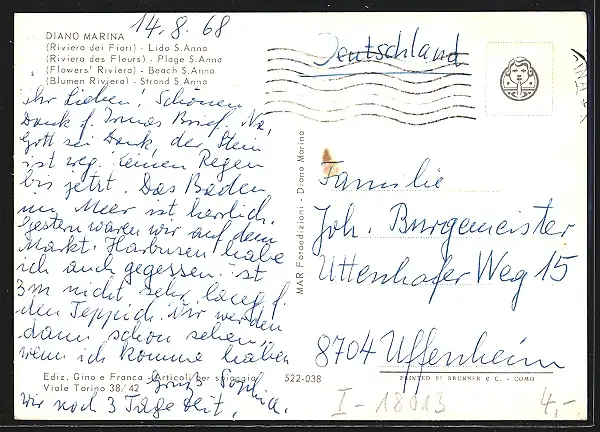 14.8.68
DIANO MARINA
(Riviera dei Fiori) - Lido S. Anna
(Riviera des Fleurs) - Plage S. Anna
(Flowers' Riviera) - Beach S. Anna
(Blumen Riviera) - Strand S. Anna
Ihr Lieben! Schönen
Dank f. Irmes Brief. Na,
Gott sei Dank, der Stein
ist weg. Keinen Regen
bis jetzt. Das Baden
im Meer ist herrlich.
Gestern waren wir auf dem
Markt. Harbusen habe
ich auch gegessen. Ist
3m nicht sehr lang f.
den Teppich. Wir werden
dann schon sehen,
wenn ich komme haben
wir noch 3 Tage Zeit,
Gruß Sophia.
Ediz. Gino e Franca - Articoli per spiaggia
Viale Torino 38/42
522-038
MAR Fotoedizioni - Diano Marina
Deutschland
Familie
Joh. Burgemeister
Uttenhofer Weg 15
8704 Uffenheim
PRINTED BY BRUNNER & C. - COMO
I-18013
4,-